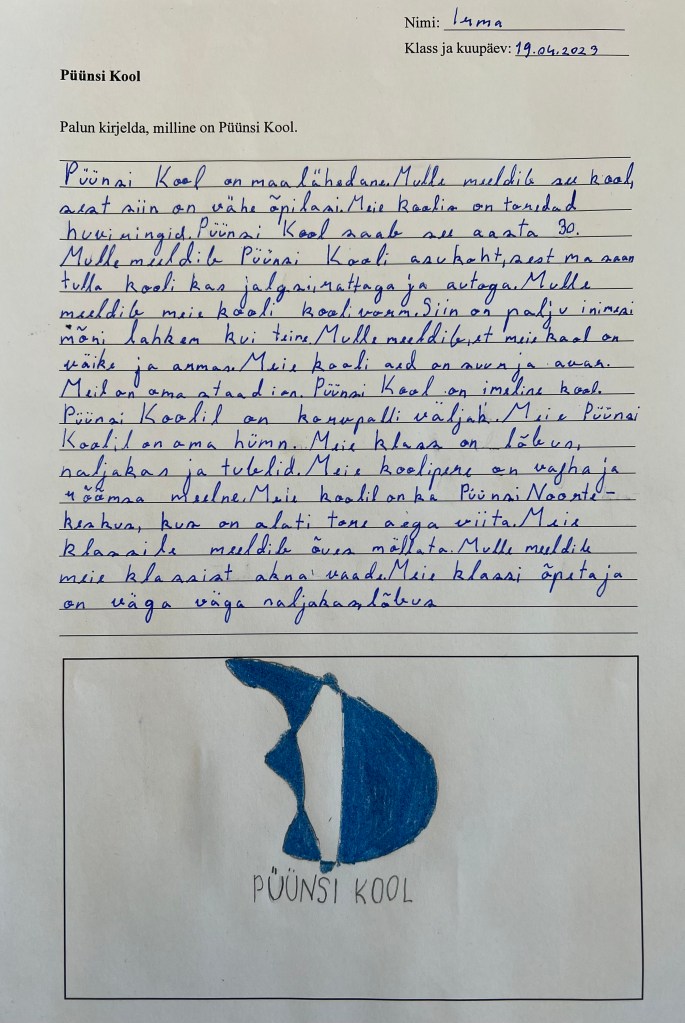 Nimi: Irma
Klass ja kuupäev: 19.04.2023
Püünsi Kool
Palun kirjelda, milline on Püünsi Kool.
Püünsi Kool on maa lähedane. Mulle meeldib su kool,
sest siin on vähe õpilasi. Meie koolis on toredad
huviringid. Püünsi Kool saab see aasta 30.
Mulle meeldib Püünsi Kooli asukoht, sest ma saan
tulla kooli kas jalgsi, rattaga ja autoga. Mulle
meeldib meie kooli koolivorm. Siin on palju inimesi
mõni lahkem kui teine. Mulle meeldib, et meie kool on
väike ja armas. Meie kooli aed on suur ja avar.
Meil on oma staadion. Püünsi Kool on imeline kool.
Püünsi Koolil on korvpalli väljak. Meie Püünsi
Koolil on oma hümn. Meie klass on lõbus,
naljakas ja tublid. Meie koolipere on vahva ja
rõõmsa meelne. Meie koolil on ka Püünsi Noorte-
keskus, kus on alati tore aega viita. Meie
klassile meeldib õues möllata. Mulle meeldib
meie klassist akna vaade. Meie klassi õpetaja
on väga väga naljakas, lõbus
PÜÜNSI KOOL